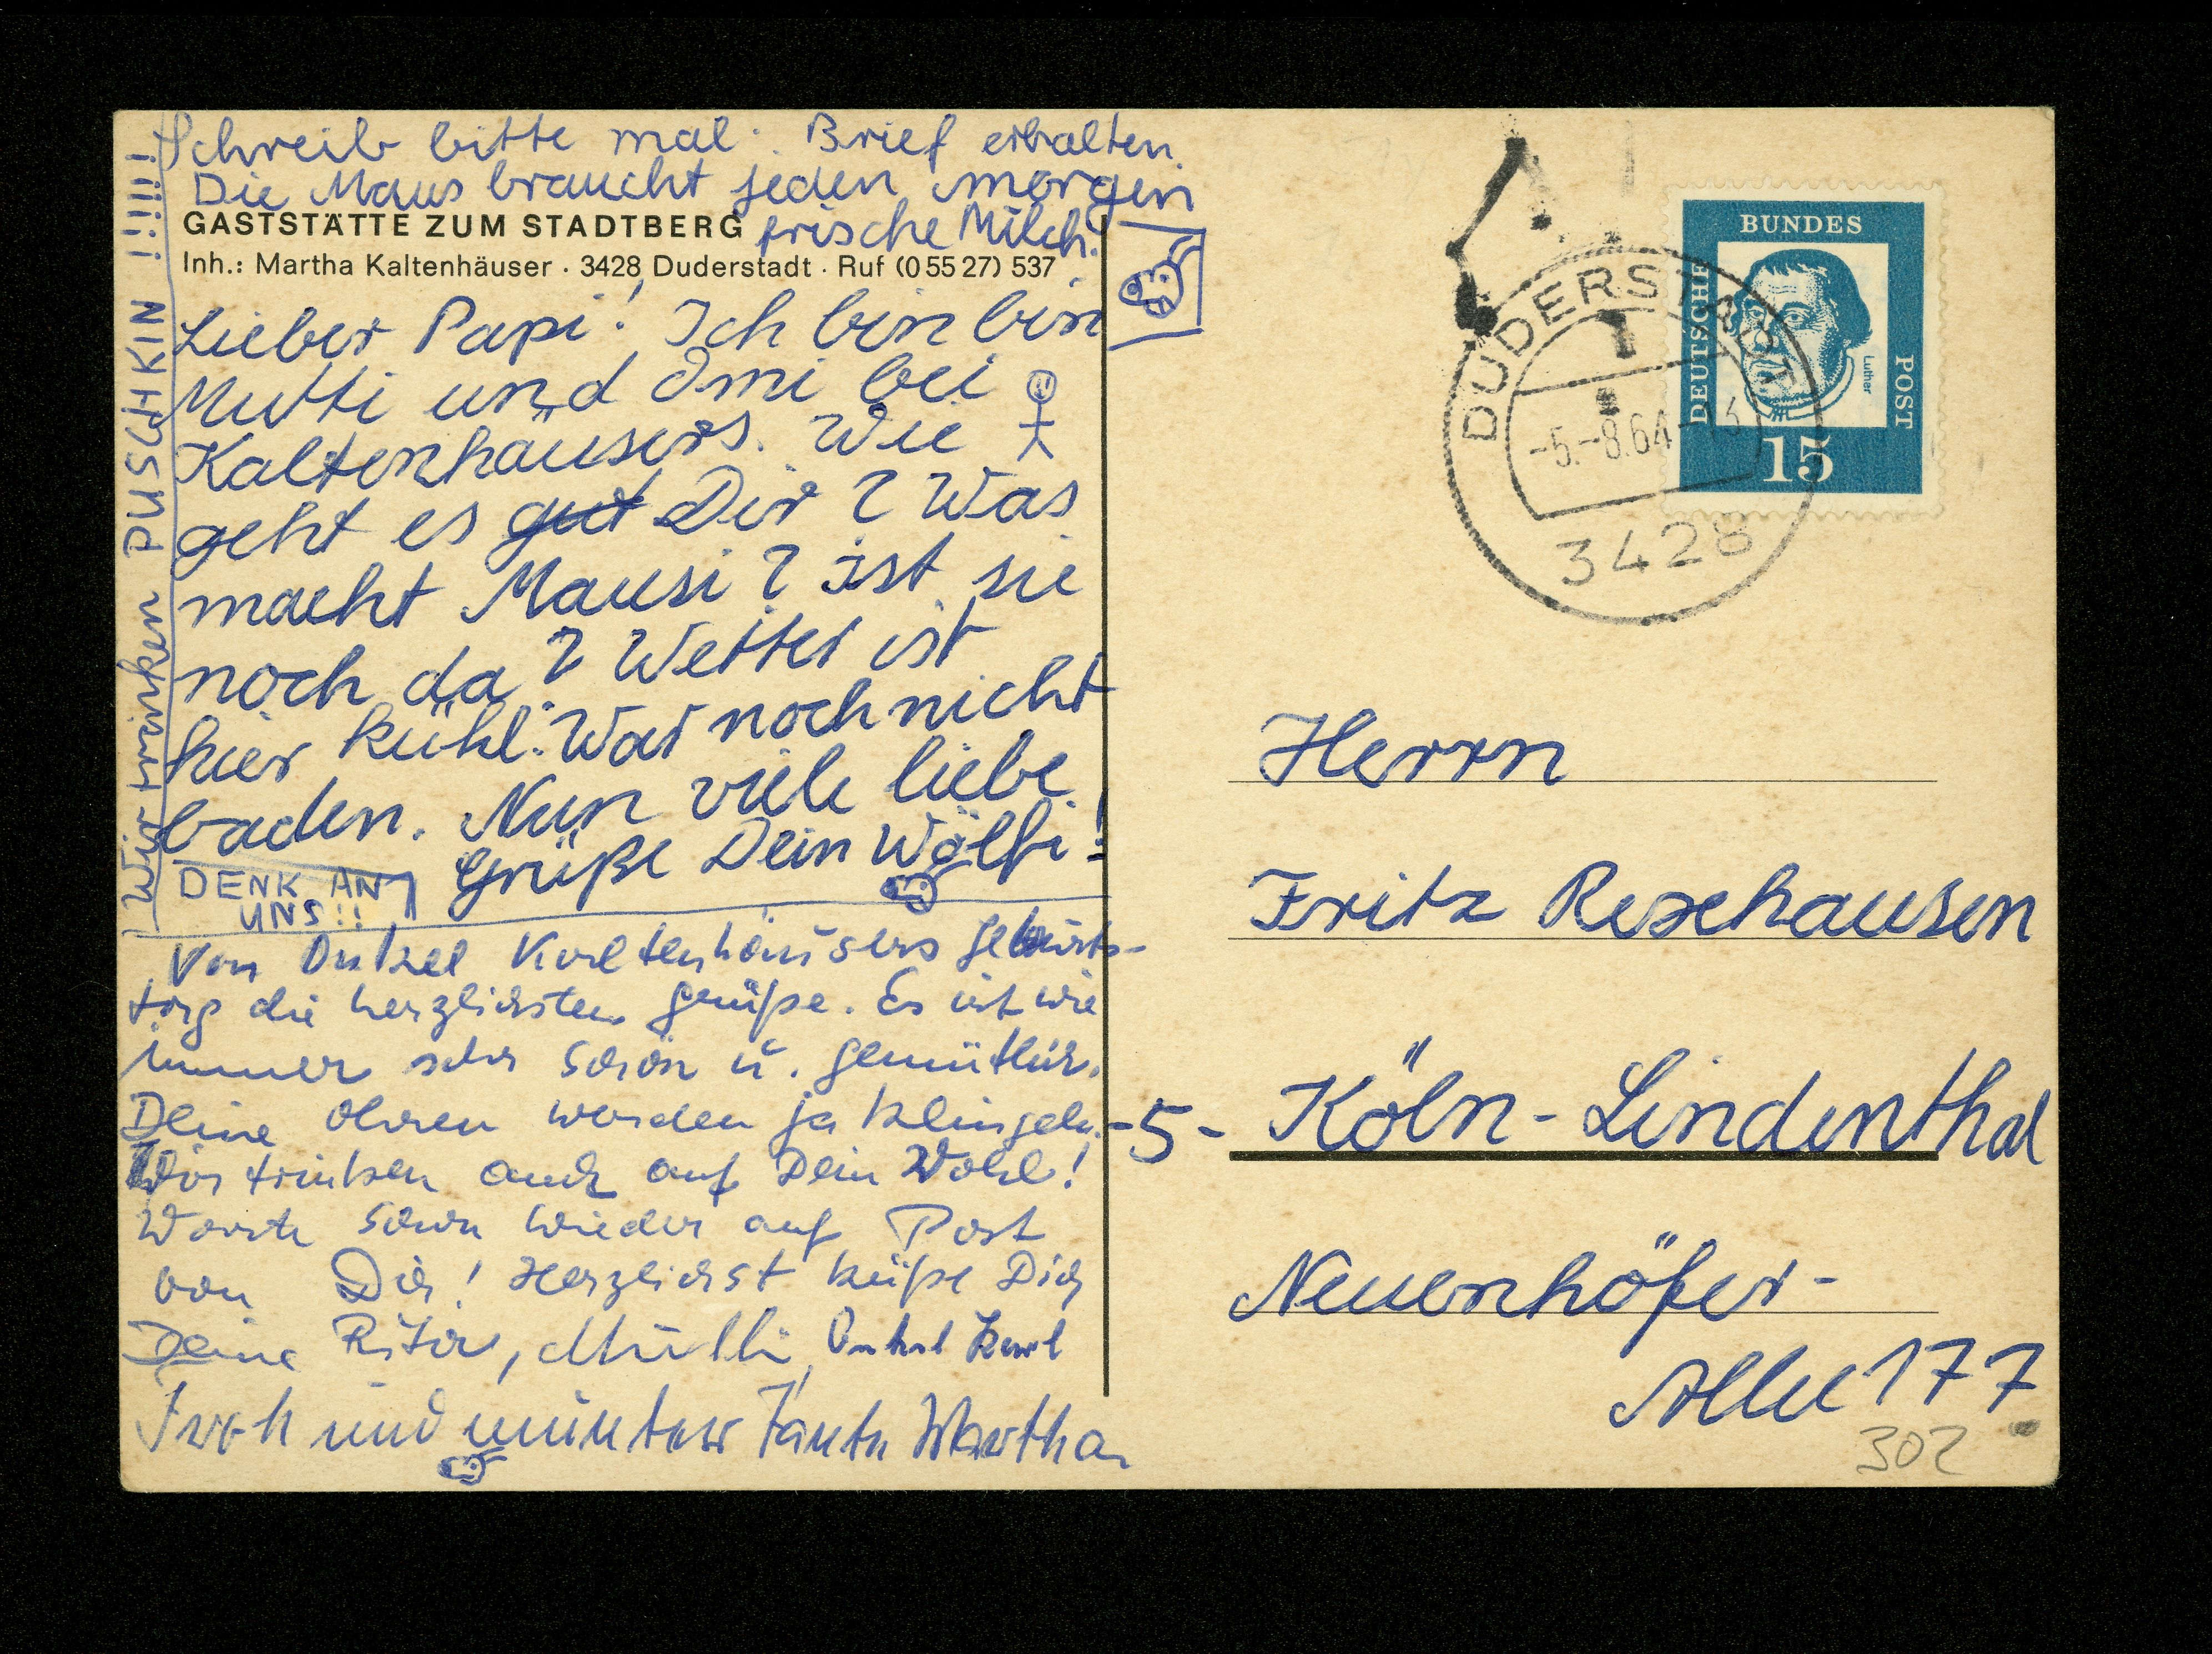 Schreib bitte mal. Brief erhalten.
Die Maus braucht jeden morgen
frische Milch.
GASTSTÄTTE ZUM STADTBERG
Inh.: Martha Kaltenhäuser · 3428 Duderstadt · Ruf (0 55 27) 537
Lieber Papi! Ich bin bin
Mutti und Omi bei
Kaltenhäusers. Wie
geht es gut Dir? Was
macht Mausi? Ist sie
noch da? Wetter ist
hier kühl. War noch nicht
baden. Nun viele liebe
Grüße Dein Wölfi!
DENK AN
UNS!!
Wir trinken PUSCHKIN !!!!!!
Von Onkel Kaltenhäusers Geburts-
tag die herzlichsten Grüße. Es ist wie
immer sehr schön u. gemütlich.
Deine Ohren werden ja klingeln.
Wir trinken auch auf Dein Wohl!
Warte schon wieder auf Post
von Dir! Herzlichst küßt Dich
Deine Rita, Mutti, Onkel Karl
Froh und munter Tante Martha
BUNDES
DEUTSCHE
POST
Luther
15
DUDERSTADT
1
-5.-8.64-13
3428
Herrn
Fritz Rexhausen
-5- Köln-Lindenthal
Neuenhöfer-
Allee 177
302